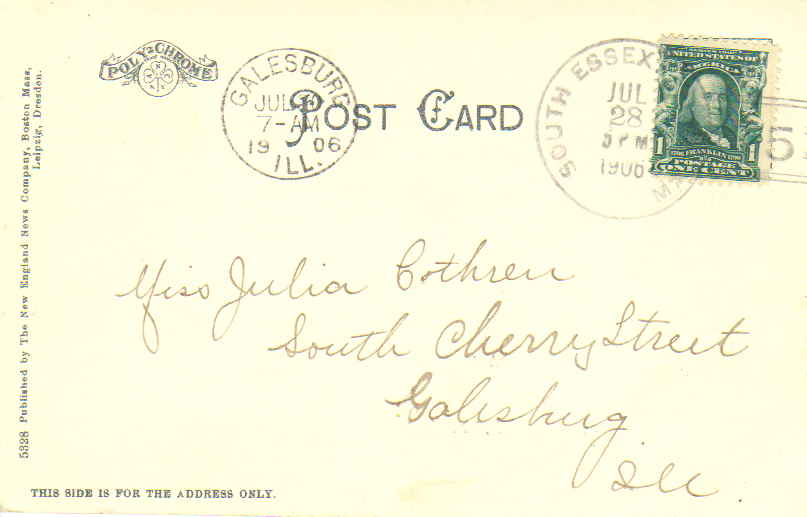 POLY-CHROME
GALESBURG
JUL
7-AM
19 06
ILL.
POST CARD
SOUTH ESSEX
JUL
28
PM
1906
MA
UNITED STATES OF
AMERICA
1 FRANKLIN 1
POSTAGE
ONE CENT
5
Miss Julia Cothren
South Cherry Street
Galesburg
Ill
5328 Published by The New England News Company, Boston Mass,
Leipzig, Dresden.
THIS SIDE IS FOR THE ADDRESS ONLY.